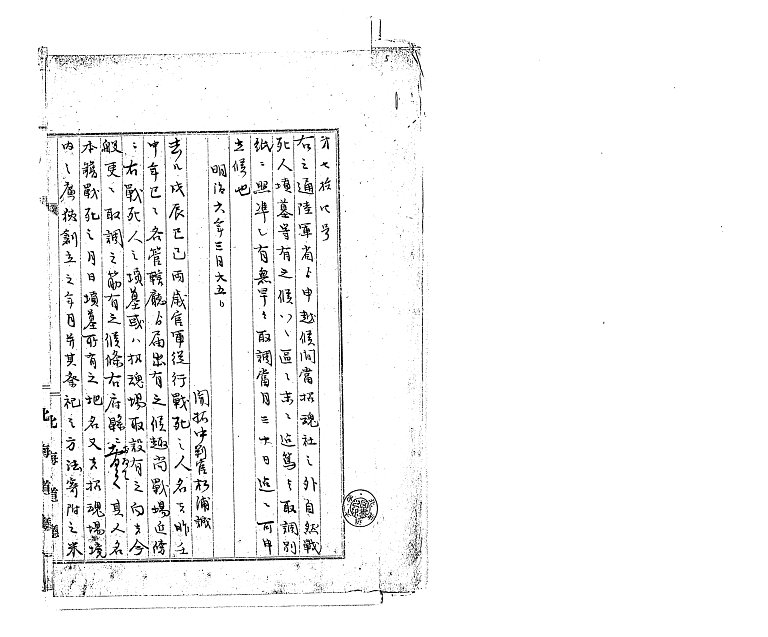 右之通陸軍省ゟ申越候間當招魂社之外自然戰
死人墳墓等有之候ハヽ區々末々迄篤ト取調別
紙ニ照準シ有無早々取調當月三十日迄ニ可申
出候也
明治六年三月十五日
開拓中判官松浦誠
去ル戊辰己巳両歳官軍従行戰死之人名ハ昨壬
申年已ニ各管轄廳ゟ届出有之候趣尚戰場近傍
ニ右戰死人之墳墓或ハ招魂場取設有之向ハ今
般更ニ取調之筋有之候條右府縣ニ
其人名
本籍戰死之月日墳墓所有之地名又ハ招魂場境
内之廣狹創立之年月并其祭祀之方法寄附之米
北海道廳
北海道廳